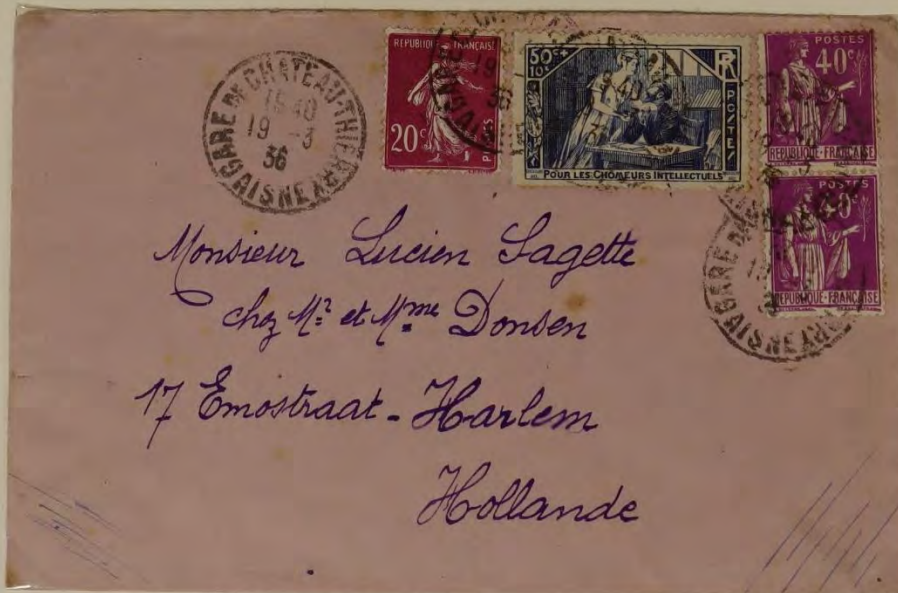 GARE DE CHATEAU-THIERRY (AISNE)
15 40
19 -3
36
REPUBLIQUE FRANÇAISE
20c
POSTES
50c+
10c
RF
POSTES
POUR LES CHÔMEURS INTELLECTUELS
POSTES
40c
REPUBLIQUE-FRANÇAISE
POSTES
40c
REPUBLIQUE-FRANÇAISE
Monsieur Lucien Sagette
chez Mr et Mme Donsen
17 Emostraat - Harlem
Hollande